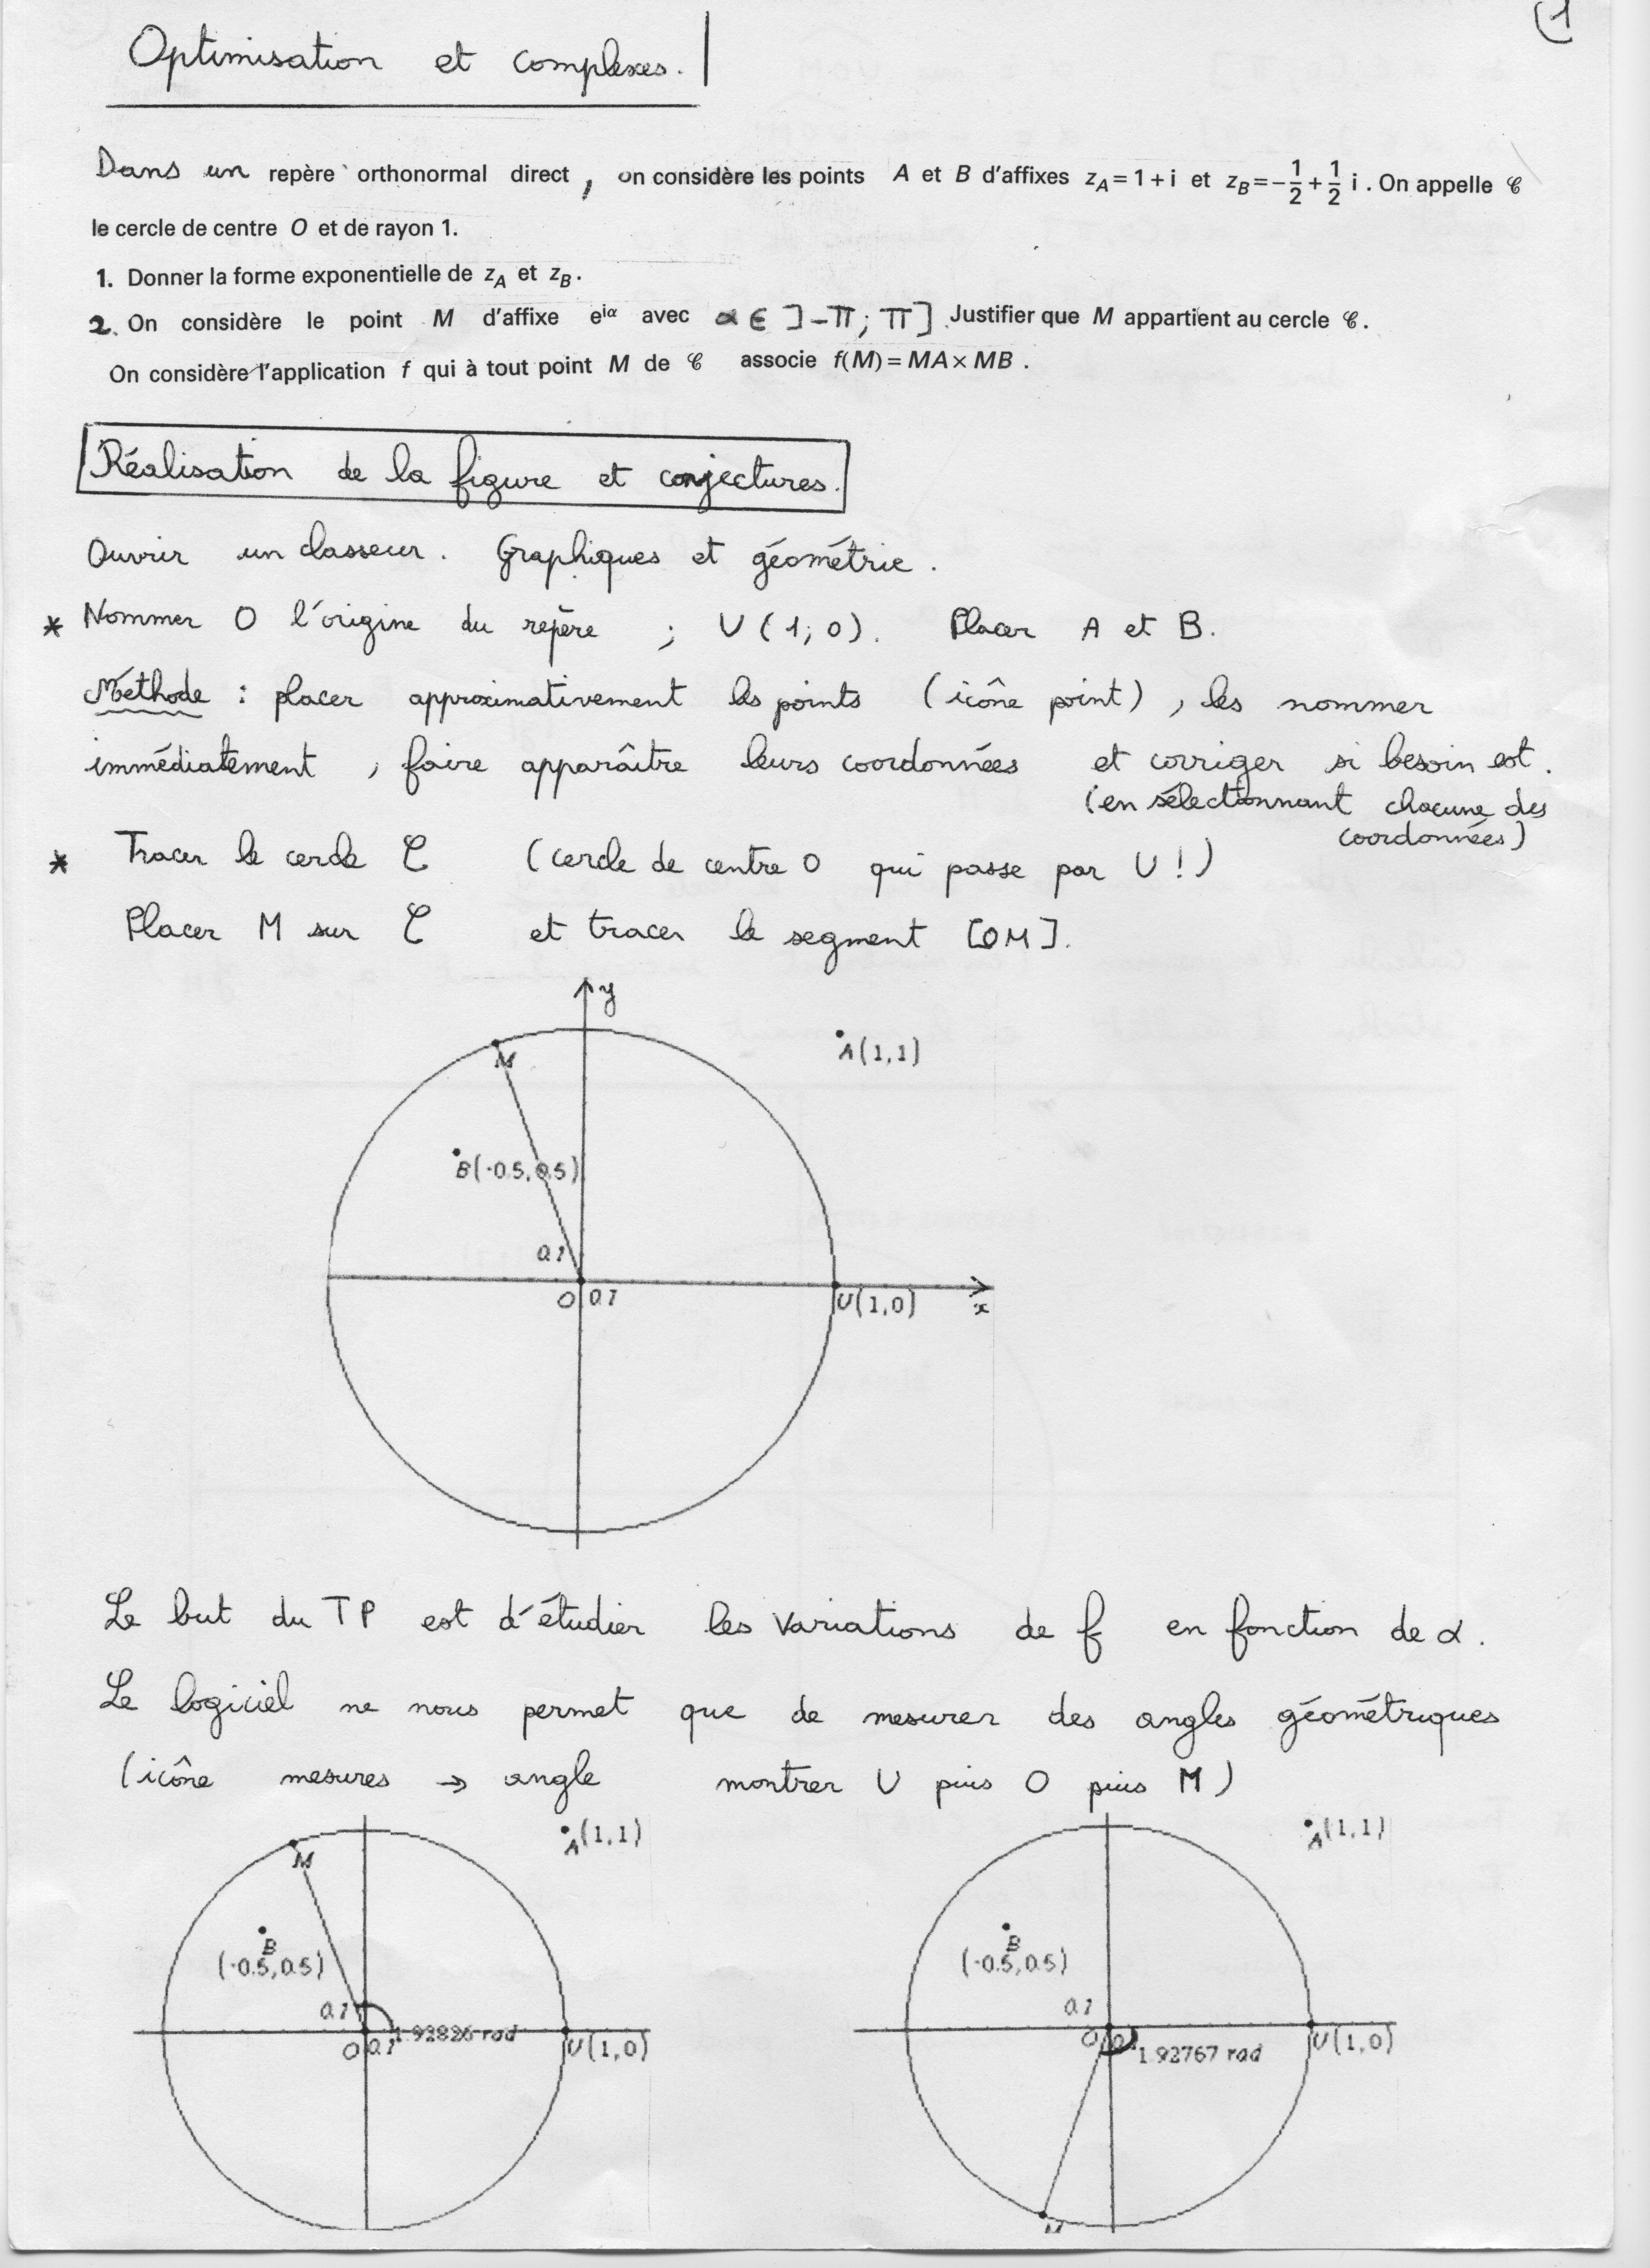 (1
Optimisation et complexes.
Dans un repère orthonormal direct, on considère les points A et B d'affixes z_A = 1 + i et z_B = -1/2 + 1/2 i. On appelle 𝒞
le cercle de centre O et de rayon 1.
1. Donner la forme exponentielle de z_A et z_B.
2. On considère le point M d'affixe e^{iα} avec α ∈ ]-π ; π]. Justifier que M appartient au cercle 𝒞.
On considère l'application f qui à tout point M de 𝒞 associe f(M) = MA × MB .
Réalisation de la figure et conjectures.
Ouvrir un classeur. Graphiques et géométrie.
* Nommer O l'origine du repère ; U (1; 0). Placer A et B.
Méthode : placer approximativement les points (icône point), les nommer
immédiatement, faire apparaître leurs coordonnées et corriger si besoin est.
(en sélectionnant chacune des
coordonnées)
* Tracer le cercle 𝒞 (cercle de centre O qui passe par U !)
Placer M sur 𝒞 et tracer le segment [OM].
y
M
A(1,1)
B(-0.5,0.5)
0.1
O 0.1
U(1,0)
x
Le but du TP est d'étudier les variations de f en fonction de α.
Le logiciel ne nous permet que de mesurer des angles géométriques
(icône mesures → angle montrer U puis O puis M)
A(1,1)
M
B
(-0.5,0.5)
0.1
1.92826 rad
O 0.1
U(1,0)
A(1,1)
B
(-0.5,0.5)
0.1
O 0.1
1.92767 rad
U(1,0)
M